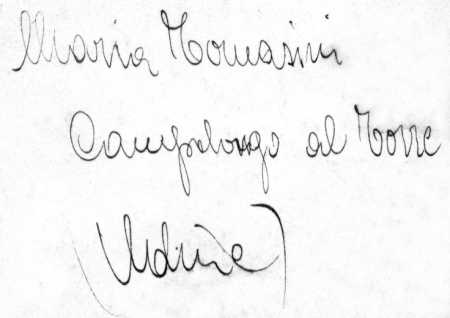 Maria Tomasini
Campolongo al Torre
(Udine)